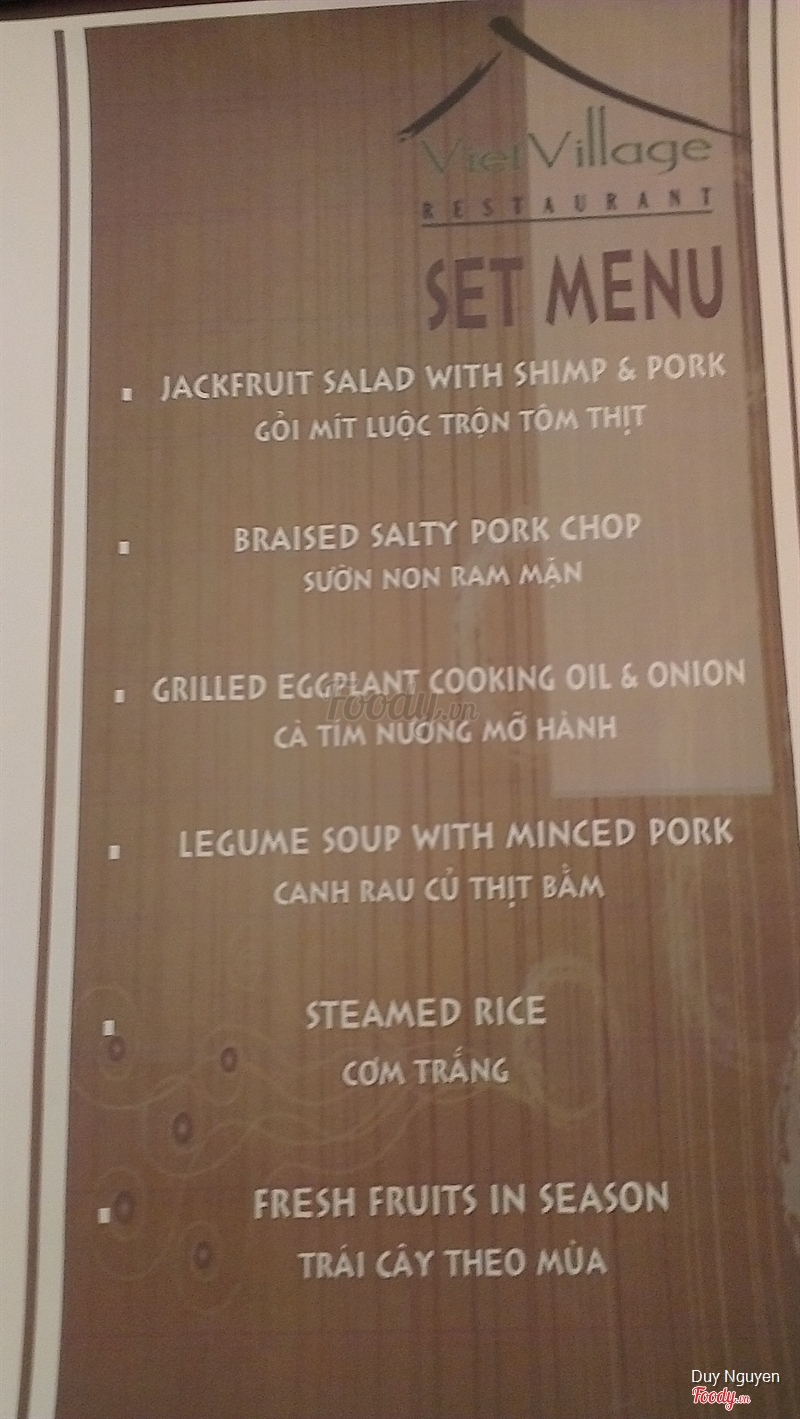 VietVillage
RESTAURANT
SET MENU
JACKFRUIT SALAD WITH SHIMP & PORK
GỎI MÍT LUỘC TRỘN TÔM THỊT
BRAISED SALTY PORK CHOP
SƯỜN NON RAM MẶN
GRILLED EGGPLANT COOKING OIL & ONION
Foody.vn
CÀ TÍM NƯỚNG MỠ HÀNH
LEGUME SOUP WITH MINCED PORK
CANH RAU CỦ THỊT BẰM
STEAMED RICE
CƠM TRẮNG
FRESH FRUITS IN SEASON
TRÁI CÂY THEO MÙA
Duy Nguyen
Foody.vn